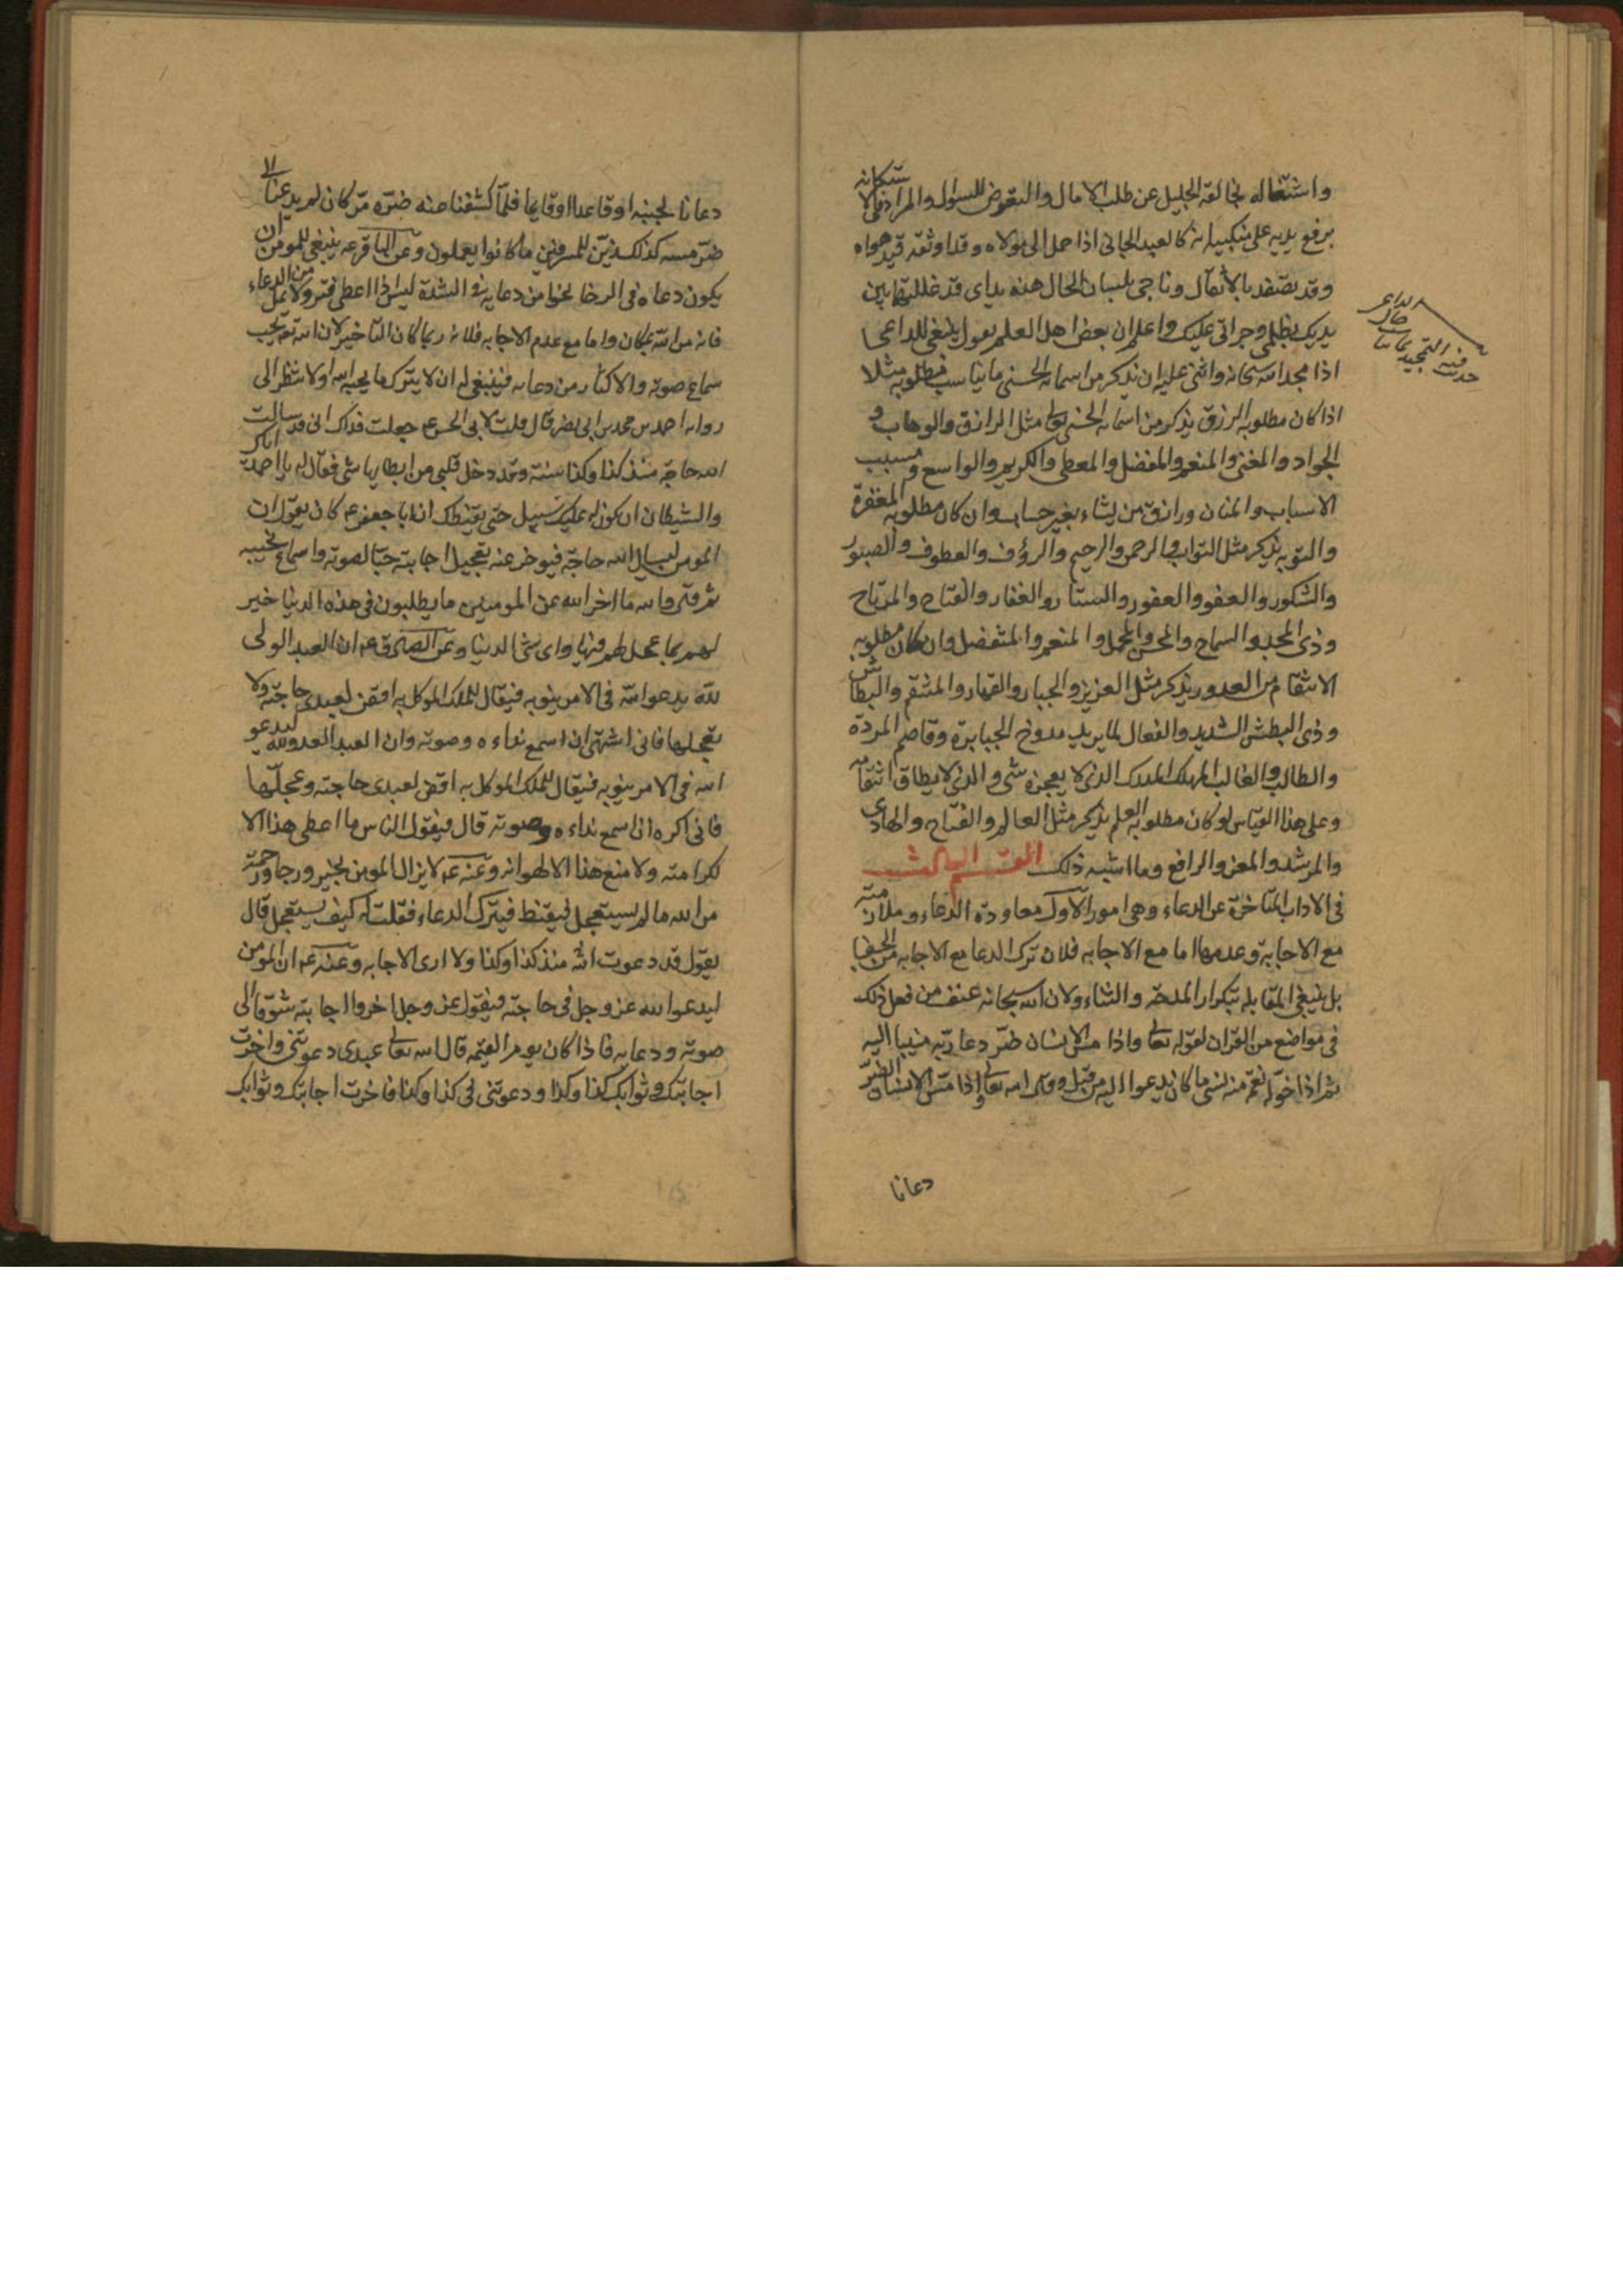 واشتغاله بخالقه الجليل عن طلب الامال والتعرض للسؤال والمراد في الاستكانة
برفع يديه على منكبيه انه كالعبد الجاني اذا حمل الى مولاه وقد اوثقه قيد هواه
وقد تصفد بالاثقال وناجى بلسان الحال هذه يداي قد غللتهما بين
يديك بظلمي وجراتي عليك واعلم ان بعض اهل العلم يقول ينبغي للداعي
اذا مجد الله سبحانه واثنى عليه ان يذكر من اسمائه الحسنى ما يناسب مطلوبه مثلا
اذا كان مطلوبه الرزق يذكر من اسمائه الحسنى تعالى مثل الرازق والوهاب و
الجواد والمغني والمنعم والمفضل والمعطي والكريم والواسع ومسبب
الاسباب والمنان ورازق من يشاء بغير حساب وان كان مطلوبه المغفرة
والتوبه يذكر مثل التواب والرحمن والرحيم والرؤف والعطوف والصبور
والشكور والعفو والغفور والستار والغفار والفتاح والمرتاح
وذي المجد والسماح والمحسن والمجمل والمنعم والمتفضل وان كان مطلوبه
الانتقام من العدو يذكر مثل العزيز والجبار والقهار والمنتقم والبطاش
وذي البطش الشديد والفعال لما يريد مدوخ الجبابرة وقاصم المردة
والطالب والغالب المهلك المدرك الذي لا يعجزه شي والذي لا يطاق انتقامه
وعلى هذا القياس لو كان مطلوبه العلم يذكر مثل العالم والفتاح والهادي
والمرشد والمعز والرافع وما اشبه ذلك القسم الثالث
في الاداب المتاخرة عن الدعاء وهي امور الاول معاودة الدعاء وملازمته
مع الاجابة وعدمها اما مع الاجابه فلان ترك الدعا مع الاجابه من الجفا
بل ينبغي المقابله بتكرار المدحة والثناء ولان الله سبحانه عنف من فعل ذلك
في مواضع من القران لقوله تعالى واذا مس الانسان ضر دعا ربه منيبا اليه
ثم اذا خوله نعمة منه نسي ما كان يدعوا اليه من قبل وقال الله تعالى واذا مس الانسان الضر
دعانا
الداعي
دعانا لجنبه او قاعدا او قايما فلما كشفنا عنه ضره مر كان لم يدعنا الى
ضر مسه كذلك زين للمسرفين ما كانوا يعملون وعن الباقر عه ينبغي للمومن ان
يكون دعاه في الرخا نحوا من دعايه في الشدة ليس اذا اعطي فتر ولا تمل من الدعاء
فانه من الله بمكان واما مع عدم الاجابه فلانه ربما كان التاخير لان الله تع يحب
سماع صوته والاكثار من دعائه فينبغي له ان لا يترك ما يحبه الله اولا تنظر الى
رواية احمد بن محمد بن ابي نصر قال قلت لابي الحسن ع جعلت فداك اني قد سالت
الله حاجة منذ كذا وكذا سنة وقد دخل قلبي من ابطايها شي فقال له يا احمد اياك
والشيطان ان يكون له عليك سبيل حتى يقنطك ان ابا جعفر ع كان يقول ان
المومن ليسال الله حاجة فيوخر عنه تعجيل اجابته حبا لصوته واسماع نحيبه
ثم قال والله ما اخر الله عن المومنين ما يطلبون في هذه الدنيا خير
لهم مما عجل لهم فيها واي شي الدنيا وعن الصادق ع ان العبد الولي
لله يدعو الله في الامر ينوبه فيقال للملك الموكل به اقض لعبدي حاجته ولا
تعجلها فاني اشتهي ان اسمع نداءه وصوته وان العبد العدو لله ليدعو
الله في الامر ينوبه فيقال للملك الموكل به اقض لعبدي حاجته وعجلها
فاني اكره ان اسمع نداءه وصوته قال فيقول الناس ما اعطي هذا الا
لكرامته ولا منع هذا الا لهوانه وعنه ع لا يزال المومن بخير ورجا ورحمة
من الله ما لم يستعجل فيقنط فيترك الدعاء فقلت له كيف يستعجل قال
يقول قد دعوت الله منذ كذا وكذا ولا ارى الاجابه وعنه ع ان المومن
ليدعو الله عز وجل في حاجته فيقول عز وجل اخروا اجابته شوقا الى
صوته ودعايه فاذا كان يوم القيمه قال الله تعالى عبدي دعوتني واخرت
اجابتك وثوابك كذا وكذا ودعوتني في كذا وكذا فاخرت اجابتك وثوابك